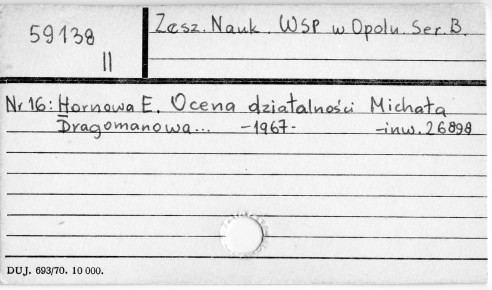 59138
II
Zesz. Nauk. WSP w Opolu. Ser. B.
Nr 16: Hornowa E. Ocena działalności Michała
Dragomanowa... -1967- -inw. 26898
DUJ. 693/70. 10 000.